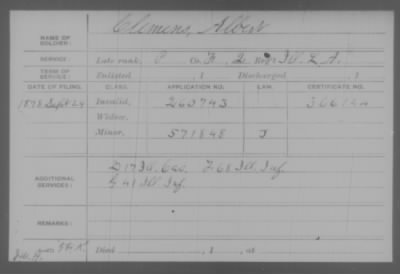 NAME OF SOLDIER: Clemens, Albert
SERVICE: Late rank, P Co. H, 2 Reg't Ill. L. A.
TERM OF SERVICE: Enlisted , 1 Discharged , 1
DATE OF FILING. CLASS. APPLICATION NO. LAW. CERTIFICATE NO.
1878 Sept 24 Invalid, 260743
Widow,
Minor, 571848 J
D 17 Ill. Cav. F 68 Ill. Inf.
ADDITIONAL SERVICES: G 41 Ill. Inf.
REMARKS:
Died , 1 , at